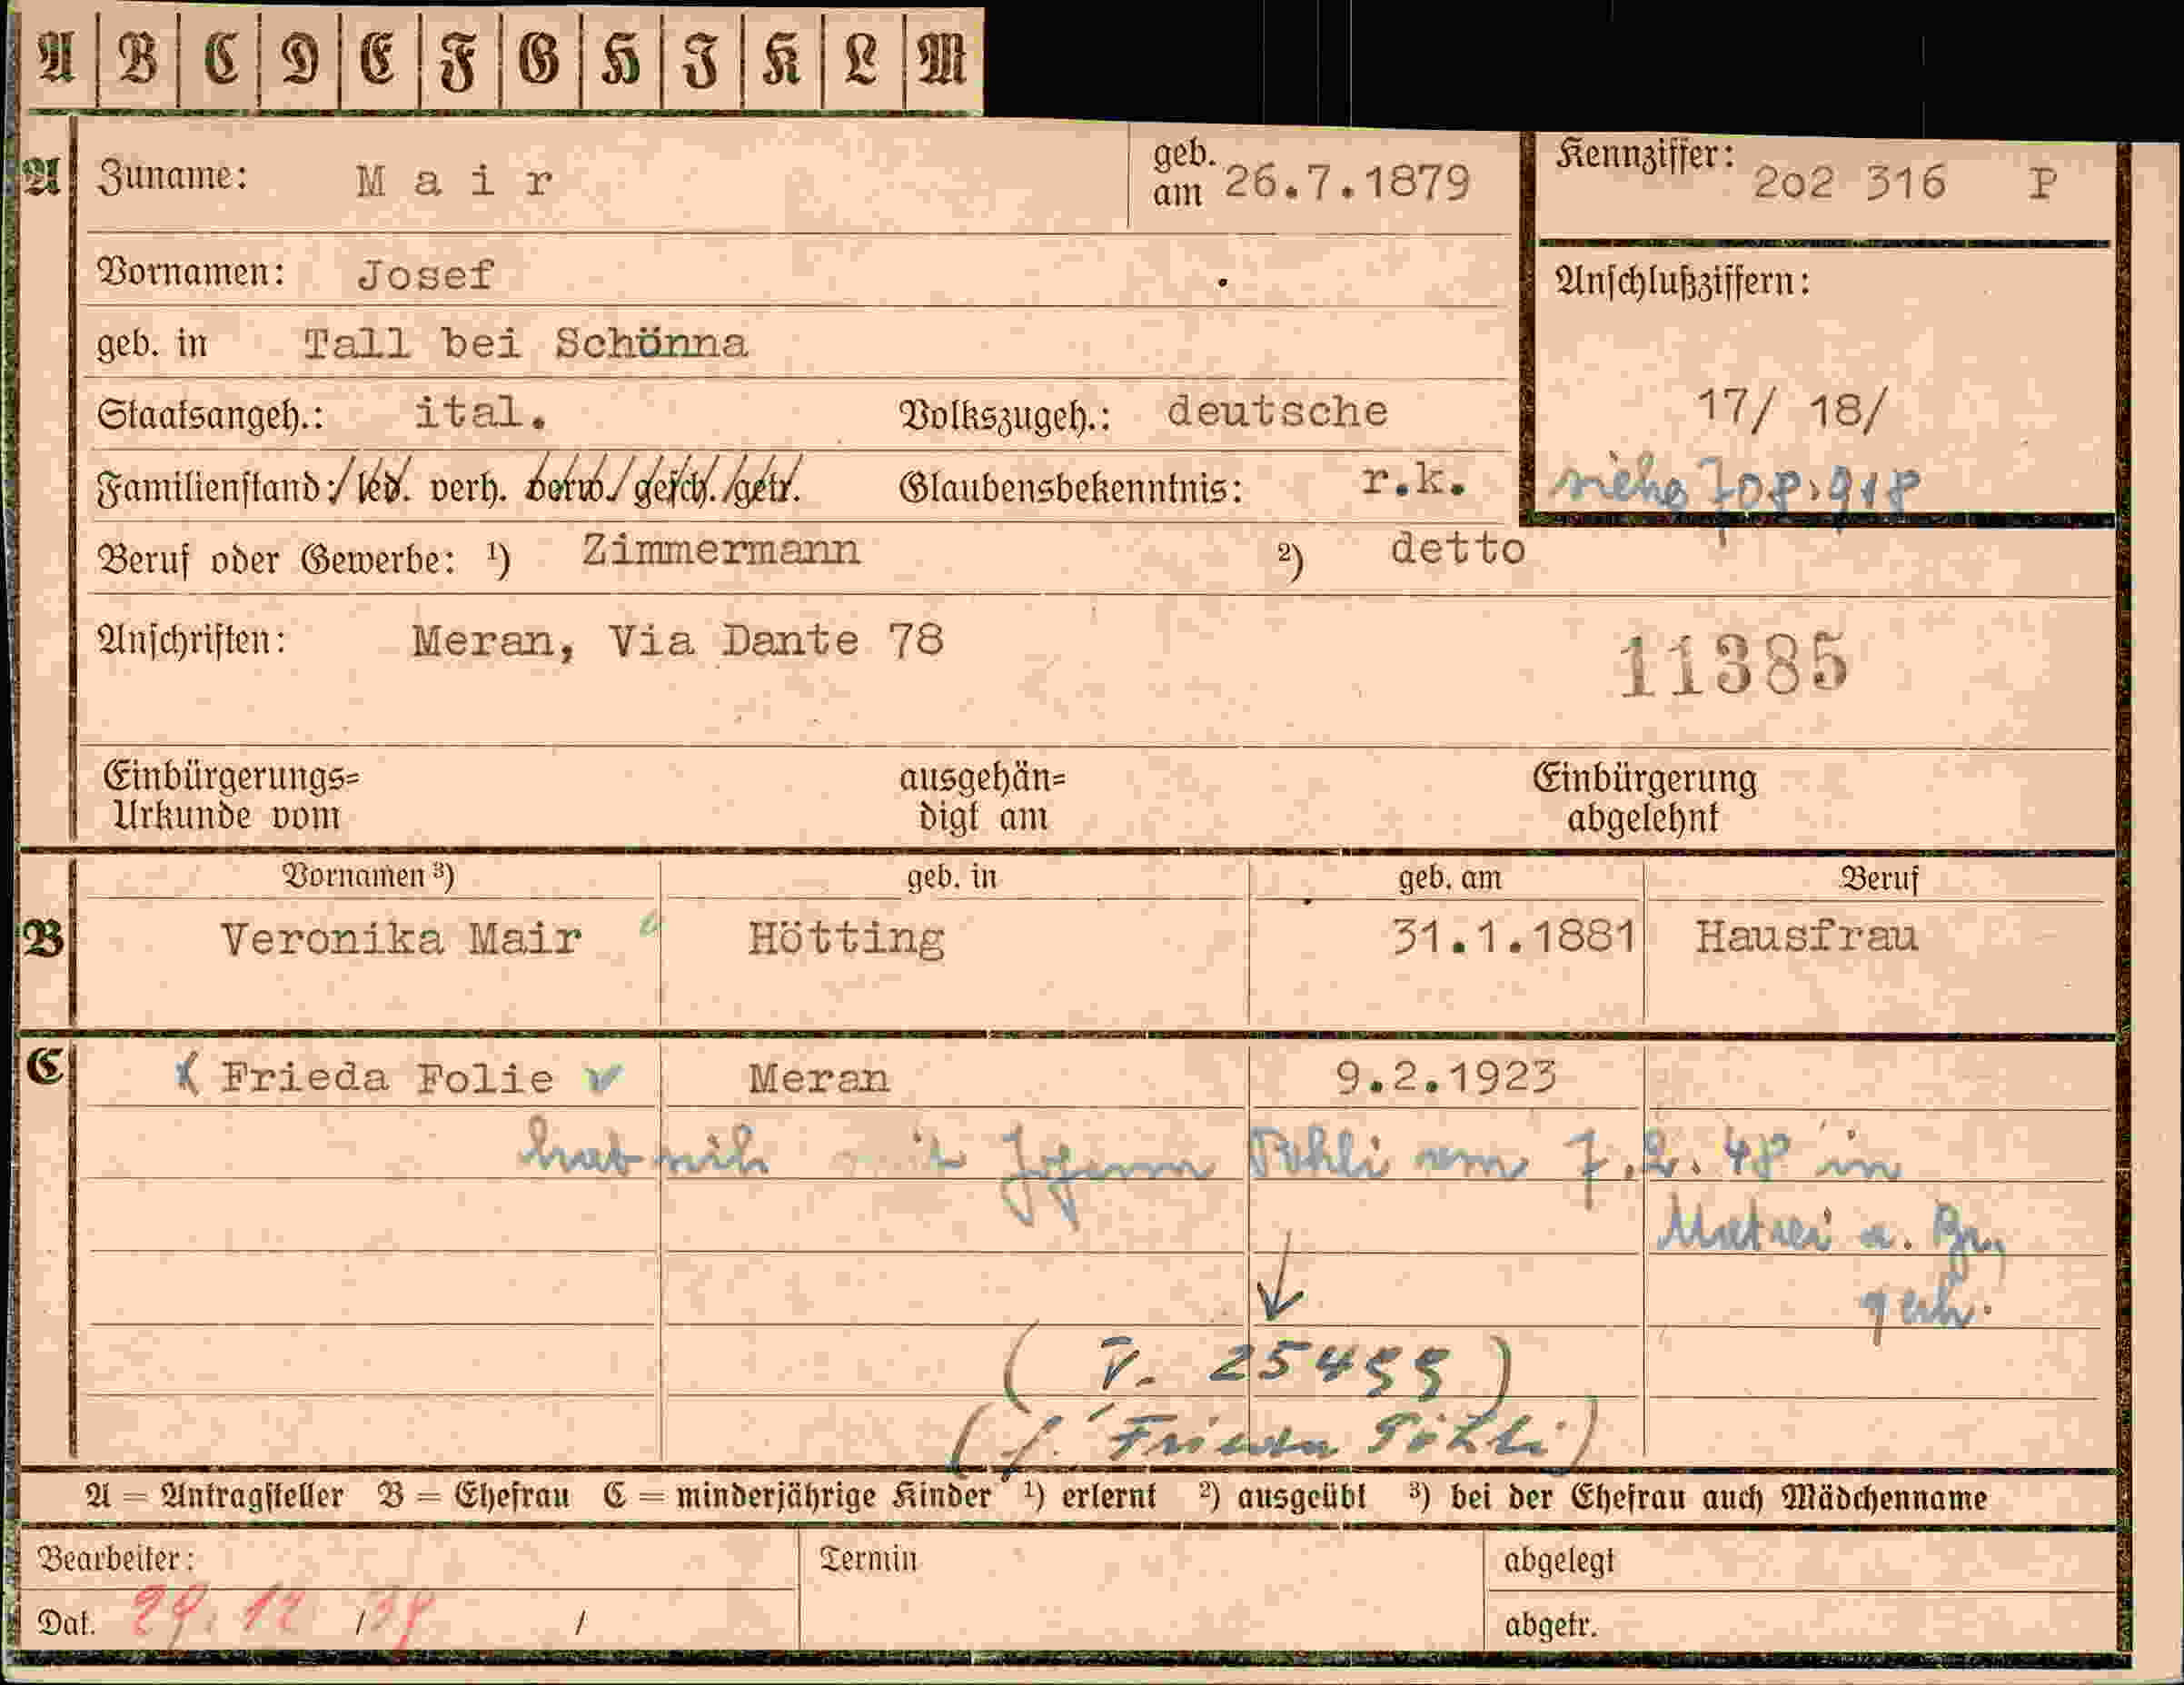 A B C D E F G H I K L M
A Zuname: Mair geb. am 26.7.1879 Kennziffer: 2o2 316 P
Vornamen: Josef
Anschlußziffern:
geb. in Tall bei Schönna
Staatsangeh.: ital. Volkszugeh.: deutsche 17/ 18/
Familienstand: led. verh. verw. gesch. getr. Glaubensbekenntnis: r.k. siehe 708,918
Beruf oder Gewerbe: ¹) Zimmermann ²) detto
Anschriften: Meran, Via Dante 78 11385
Einbürgerungs= ausgehän= Einbürgerung
Urkunde vom digt am abgelehnt
Vornamen ³) geb. in geb. am Beruf
B Veronika Mair Hötting 31.1.1881 Hausfrau
C Frieda Folie Meran 9.2.1923
hat sich mit Johann am 7.2.48 in
Matrei a. Br.
( V. 25499 )
A = Antragsteller B = Ehefrau C = minderjährige Kinder ¹) erlernt ²) ausgeübt ³) bei der Ehefrau auch Mädchenname
Bearbeiter: Termin abgelegt
Dat. 29. 12 / 39 / abgetr.